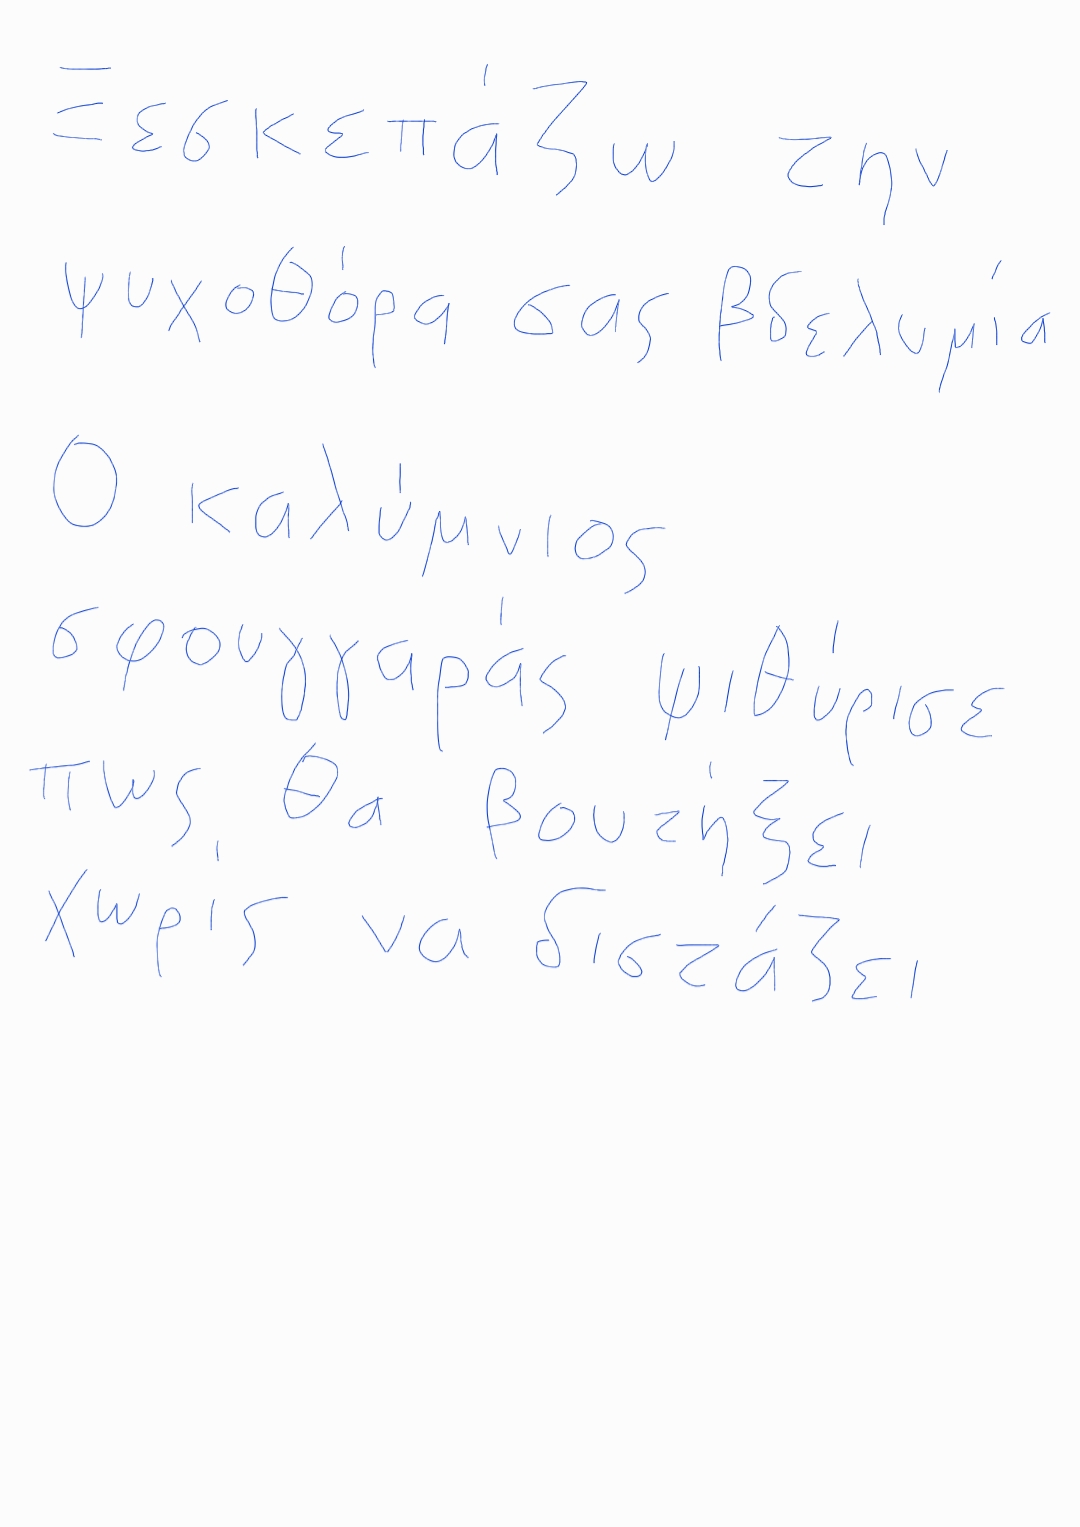 Ξεσκεπάζω την
ψυχοθόρα σας βδελυμία
Ο καλύμνιος
σφουγγαράς ψιθύρισε
πως θα βουτήξει
χωρίς να διστάζει